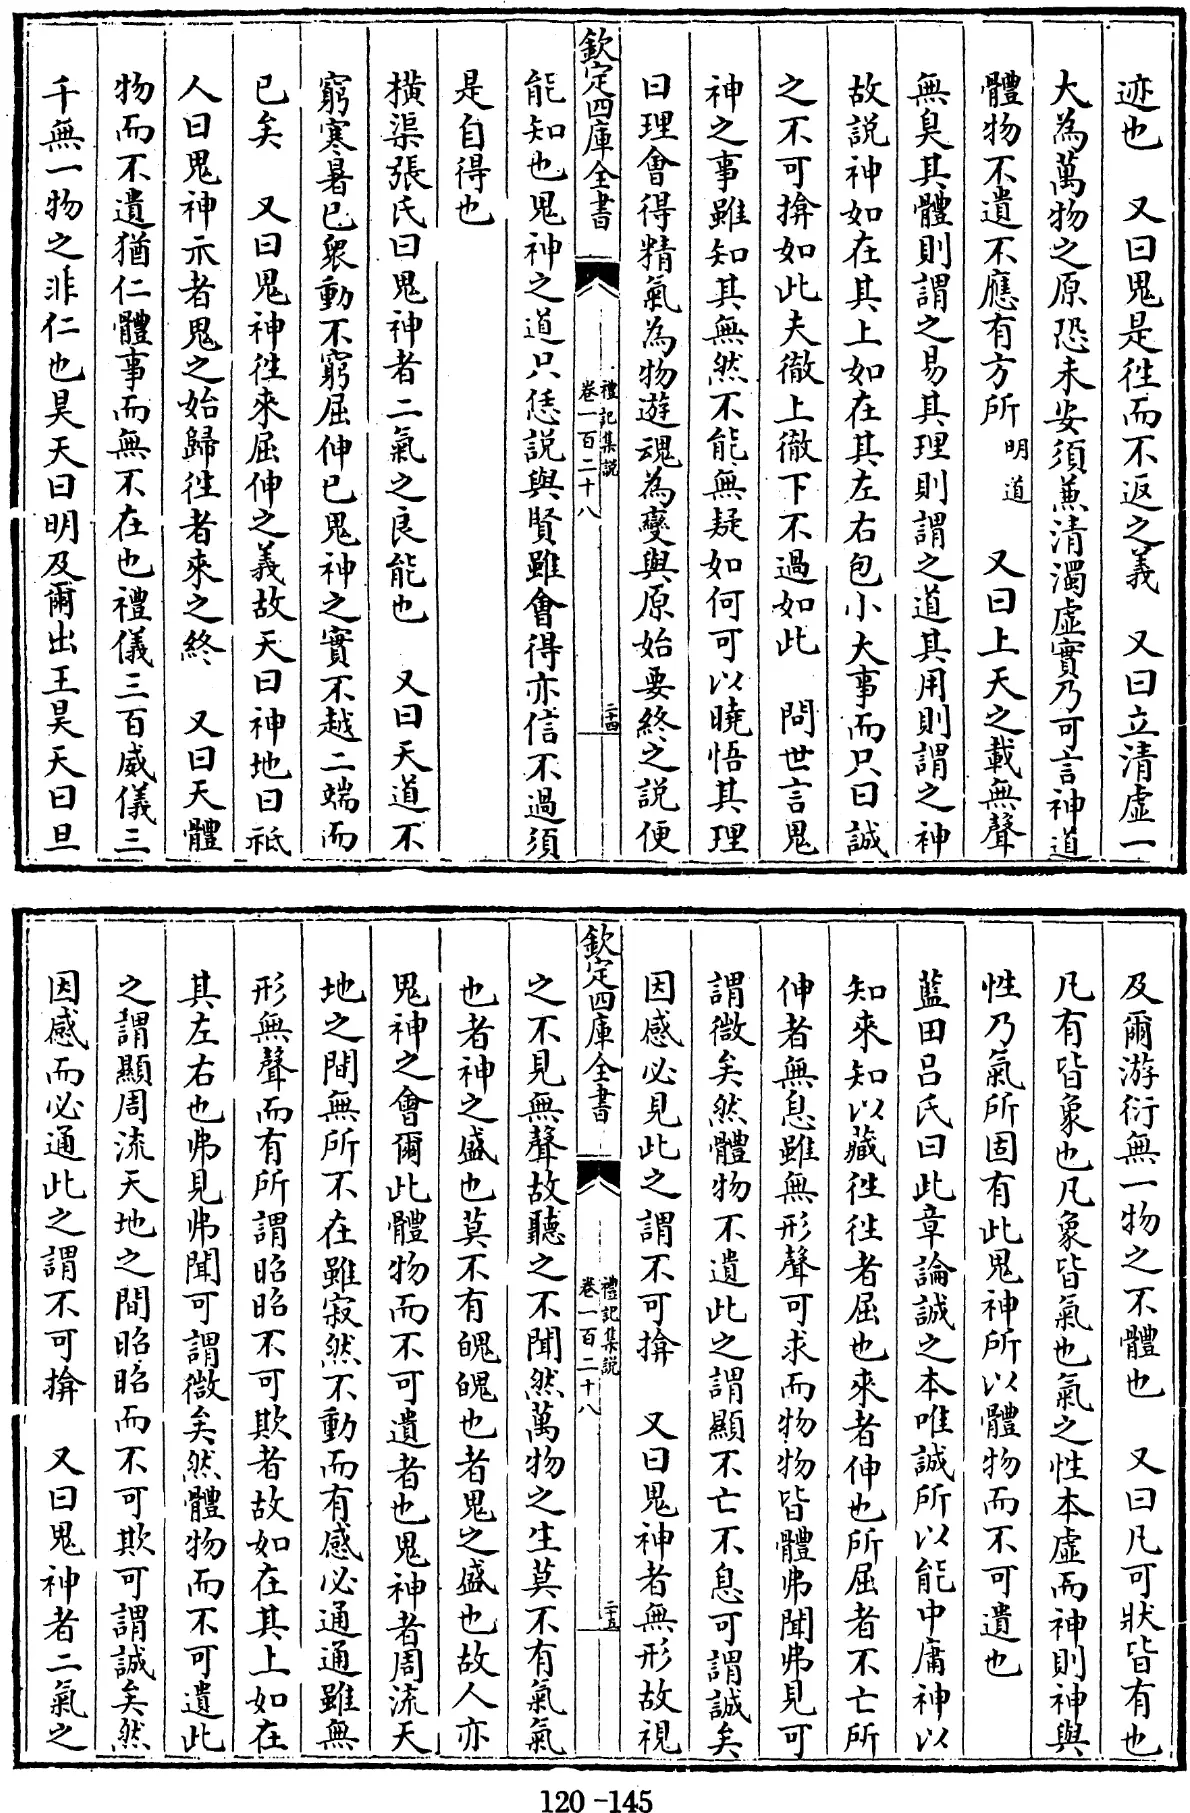 迹也　又曰鬼是徃而不返之義　又曰立清虚一
大為萬物之原恐未安須兼清濁虚實乃可言神道
體物不遺不應有方所明道　又曰上天之載無聲
無臭其體則謂之易其理則謂之道其用則謂之神
故説神如在其上如在其左右包小大事而只曰誠
之不可揜如此夫徹上徹下不過如此　問世言鬼
神之事雖知其無然不能無疑如何可以曉悟其理
曰理會得精氣為物遊魂為變與原始要終之説便
欽定四庫全書
禮記集説
卷一百二十八
二十四
能知也鬼神之道只恁説與賢雖會得亦信不過須
是自得也
橫渠張氏曰鬼神者二氣之良能也　又曰天道不
窮寒暑已衆動不窮屈伸已鬼神之實不越二端而
已矣　又曰鬼神徃來屈伸之義故天曰神地曰祗
人曰鬼神示者鬼之始歸徃者來之終　又曰天體
物而不遺猶仁體事而無不在也禮儀三百威儀三
千無一物之非仁也昊天曰明及爾出王昊天曰旦
及爾游衍無一物之不體也　又曰凡可狀皆有也
凡有皆象也凡象皆氣也氣之性本虚而神則神與
性乃氣所固有此鬼神所以體物而不可遺也
藍田吕氏曰此章論誠之本唯誠所以能中庸神以
知來知以藏徃徃者屈也來者伸也所屈者不亡所
伸者無息雖無形聲可求而物物皆體弗聞弗見可
謂微矣然體物不遺此之謂顯不亡不息可謂誠矣
因感必見此之謂不可揜　又曰鬼神者無形故視
欽定四庫全書
禮記集説
卷一百二十八
二十五
之不見無聲故聽之不聞然萬物之生莫不有氣氣
也者神之盛也莫不有魄魄也者鬼之盛也故人亦
鬼神之會爾此體物而不可遺者也鬼神者周流天
地之間無所不在雖寂然不動而有感必通通雖無
形無聲而有所謂昭昭不可欺者故如在其上如在
其左右也弗見弗聞可謂微矣然體物而不可遺此
之謂顯周流天地之間昭昭而不可欺可謂誠矣然
因感而必通此之謂不可揜　又曰鬼神者二氣之
120-145